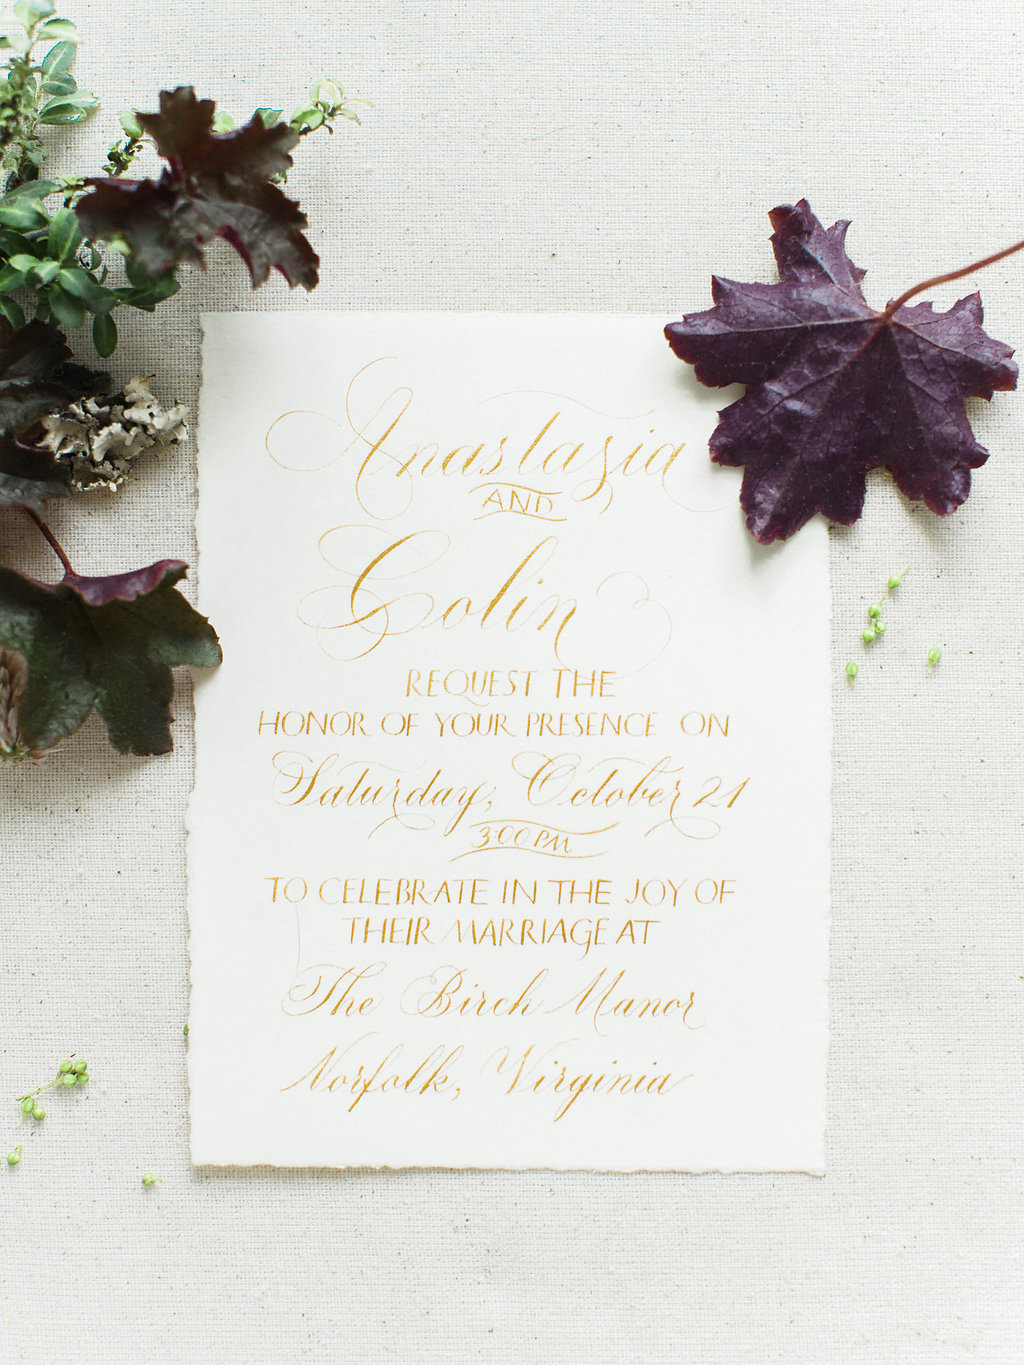 Anastasia
AND
Colin
REQUEST THE
HONOR OF YOUR PRESENCE ON
Saturday, October 21
3:00 PM
TO CELEBRATE IN THE JOY OF
THEIR MARRIAGE AT
The Birch Manor
Norfolk, Virginia